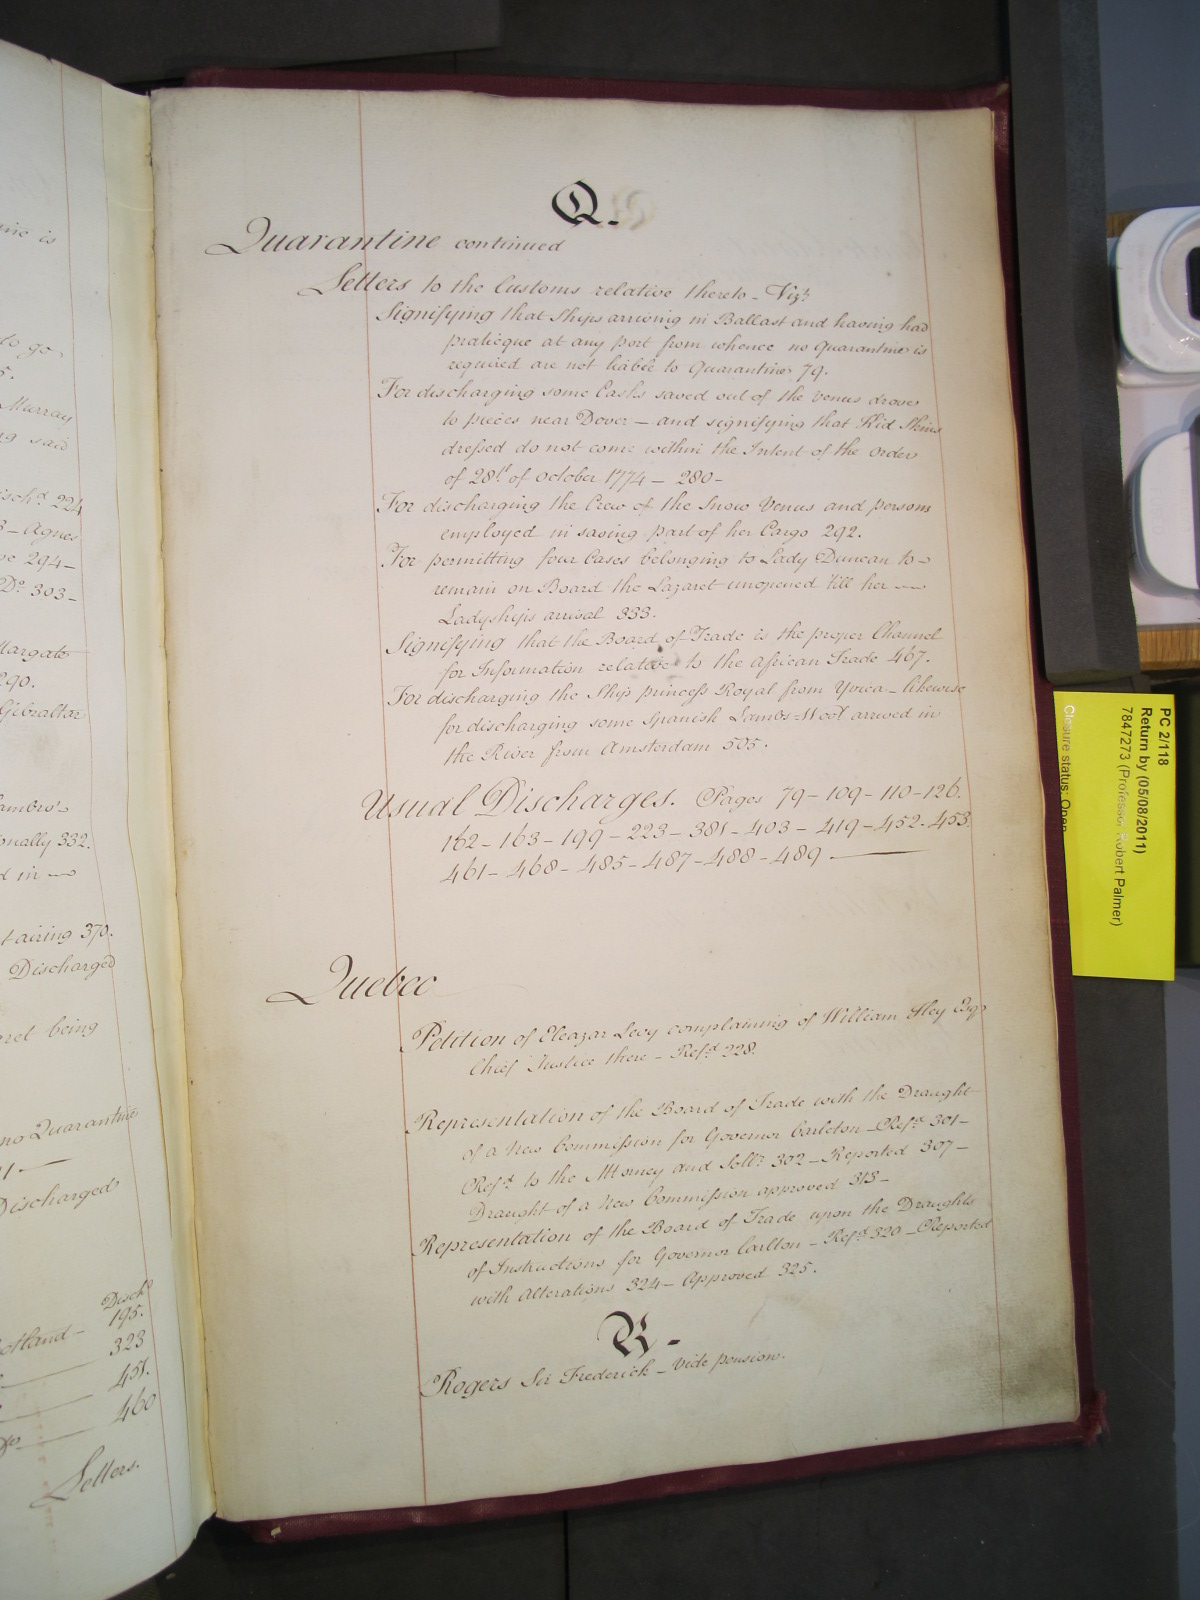 Q.
Quarantine continued
Letters to the Customs relative thereto - Vizt.
Signifying that Ships arriving in Ballast and having had
praticque at any port from whence no Quarantine is
required are not liable to Quarantine 79.
For discharging some Casks saved out of the Venus drove
to pieces near Dover - and signifying that Kid Skins
dressed do not come within the Intent of the Order
of 28th of October 1774 - 280 -
For discharging the Crew of the Snow Venus and persons
employed in saving part of her Cargo 292.
For permitting four Cases belonging to Lady Duncan to
remain on Board the Lazaret unopened till her
Ladyships arrival 333.
Signifying that the Board of Trade is the proper Channel
for Information relative to the African Trade 467.
For discharging the Ship princess Royal from Yvica - likewise
for discharging some Spanish Lambs=Wool arrived in
the River from Amsterdam 505.
Usual Discharges. Pages 79 - 109 - 110 - 126.
162 - 163 - 199 - 223 - 381 - 403 - 419 - 452 - 453.
461 - 468 - 485 - 487 - 488 - 489
Quebec
Petition of Eleazar Levy complaining of William Hey Esqr
Chief Justice there - Refd 228.
Representation of the Board of Trade with the Draught
of a New Commission for Governor Carleton - Refd 301 -
Refd to the Attorney and Sollr 302 - Reported 307 -
Draught of a New Commission approved 313 -
Representation of the Board of Trade upon the Draughts
of Instructions for Governor Carlton - Refd 320 - Reported
with Alterations 324 - Approved 325.
R -
Rogers Sir Frederick - Vide pension.
is
to go
Murray
said
Dischd 224
Agnes
294 -
Do 303 -
Margate
290.
Gibraltar
332.
in
airing 370.
Discharged
being
no Quarantine
Discharged
Dischd
195.
323
451.
460
Letters.
PC 2/118
Return by (05/08/2011)
7847273 (Professor Robert Palmer)
Closure status: Open